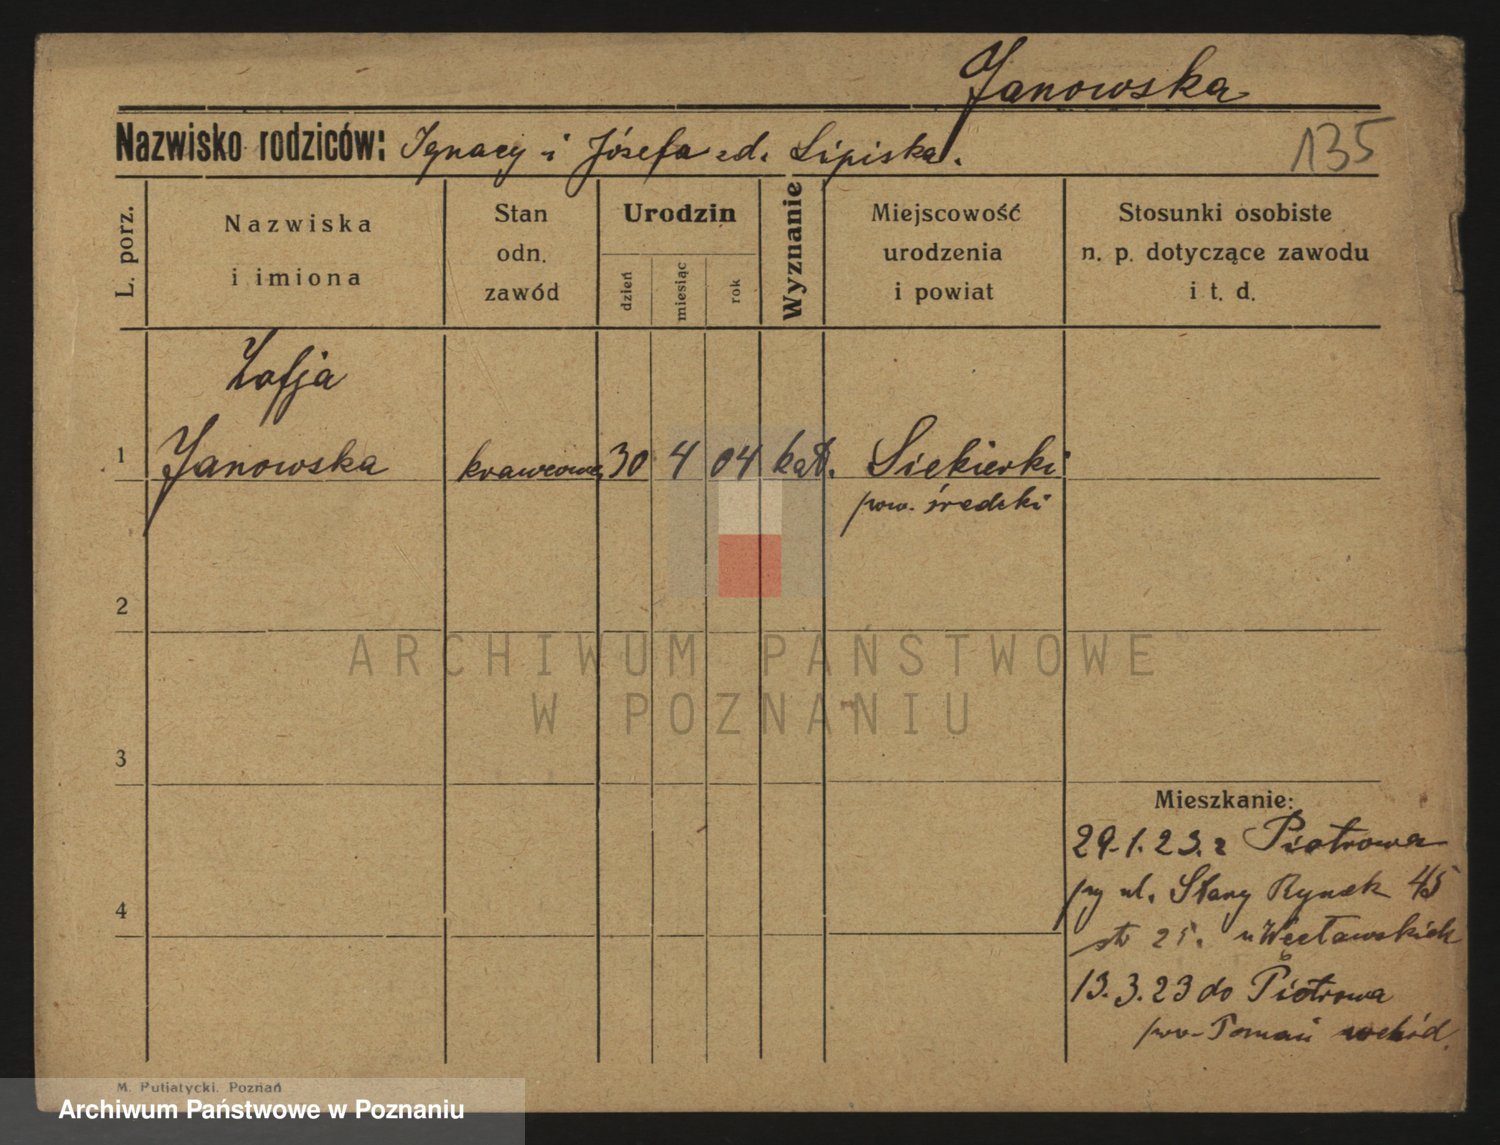 Janowska
135
Nazwisko rodziców: Ignacy i Józefa zd. Lipiska.
L. porz.
Nazwiska
i imiona
Stan
odn.
zawód
Urodzin
dzień
miesiąc
rok
Wyznanie
Miejscowość
urodzenia
i powiat
Stosunki osobiste
n. p. dotyczące zawodu
i t. d.
Zofja
1 Janowska krawcowa 30 4 04 kat. Siekierki
pow. średzki
2
3
4
Mieszkanie:
29.1.23. z Piotrowa
ul. Stary Rynek 45
str 25. u Węcławskich
13.3.23 do Piotrowa
pow. wchód.
M. Putiatycki, Poznań
ARCHIWUM PAŃSTWOWE
W POZNANIU
Archiwum Państwowe w Poznaniu